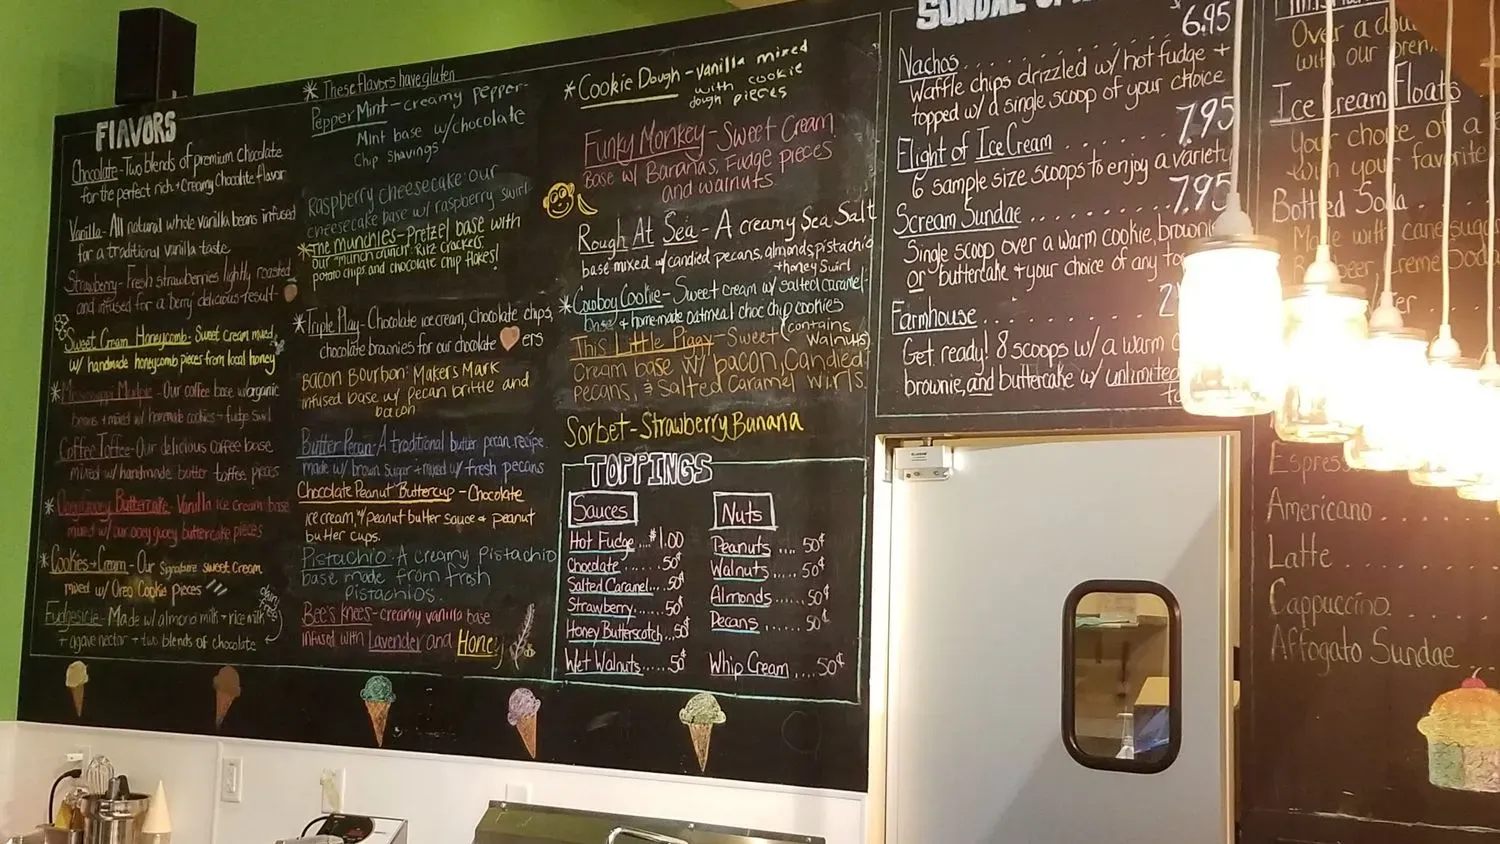 FLAVORS
Chocolate - Two blends of premium chocolate
for the perfect rich + Creamy Chocolate flavor
Vanilla - All natural whole vanilla beans infused
for a traditional vanilla taste
Strawberry - Fresh strawberries lightly roasted
and infused for a berry delicious result
Sweet Cream Honeycomb - Sweet cream mixed
w/ handmade honeycomb pieces from local honey
* Mississippi Mudpie - Our coffee base w/organic
beans + mixed w/ homemade cookies + fudge swirl
Coffee Toffee - Our delicious coffee base
mixed w/ handmade butter toffee pieces
* Ooey Gooey Buttercake - Vanilla ice cream base
mixed w/ our ooey gooey buttercake pieces
* Cookies + Cream - Our signature sweet cream
mixed w/ Oreo Cookie pieces
Fudgesicle - Made w/ almond milk + rice milk
+ agave nectar + two blends of chocolate
dairy free
* These flavors have gluten
Pepper Mint - creamy pepper-
Mint base w/chocolate
Chip shavings
Raspberry Cheesecake: our
cheesecake base w/ raspberry swirl
* The Munchies - Pretzel base with
our "munch crunch" Ritz crackers
potato chips and chocolate chip flakes!
* Triple Play - Chocolate ice cream, chocolate chips,
chocolate brownies for our chocolate ers
Bacon Bourbon: Makers Mark
infused base w/ pecan brittle and
bacon
Butter Pecan - A traditional butter pecan recipe
made w/ brown sugar + mixed w/ fresh pecans
Chocolate Peanut Buttercup - Chocolate
ice cream w/ peanut butter sauce + peanut
butter cups.
Pistachio: A creamy Pistachio
base made from fresh
Pistachios.
Bee's Knees - creamy vanilla base
infused with Lavender and Honey
* Cookie Dough - Vanilla mixed
with cookie
dough pieces
Funky Monkey - Sweet Cream
Base w/ Bananas, Fudge pieces
and walnuts
Rough At Sea - A creamy Sea Salt
base mixed w/candied pecans, almonds, pistachio
+ honey swirl
* Cowboy Cookie - Sweet cream w/ salted caramel
base + homemade oatmeal choc chip cookies
(contains walnuts)
This Little Piggy - Sweet
Cream base w/ bacon, Candied
pecans, & Salted Caramel wirls.
Sorbet - Strawberry Banana
TOPPINGS
Sauces
Hot Fudge... $1.00
Chocolate ..... .50¢
Salted Caramel... .50¢
Strawberry..... .50¢
Honey Butterscotch... .50¢
Wet Walnuts...... .50¢
Nuts
Peanuts .... .50¢
Walnuts .... .50¢
Almonds..... .50¢
Pecans ...... .50¢
Whip Cream .... .50¢
SUNDAE
$6.95
Nachos
Waffle chips drizzled w/ hot fudge +
topped w/ a single scoop of your choice
7.95
Flight of Ice Cream
6 sample size scoops to enjoy a variety
7.95
Scream Sundae
Single scoop over a warm cookie, brownie
or buttercake + your choice of any
Farmhouse
Get ready! 8 scoops w/ a warm
brownie, and buttercake w/ unlimited
Over a
with our
Ice Cream Floats
Your choice of a
with your favorite
Bottled Soda
Made with cane sugar
Creme Soda
Espresso
Americano
Latte
Cappuccino
Affogato Sundae